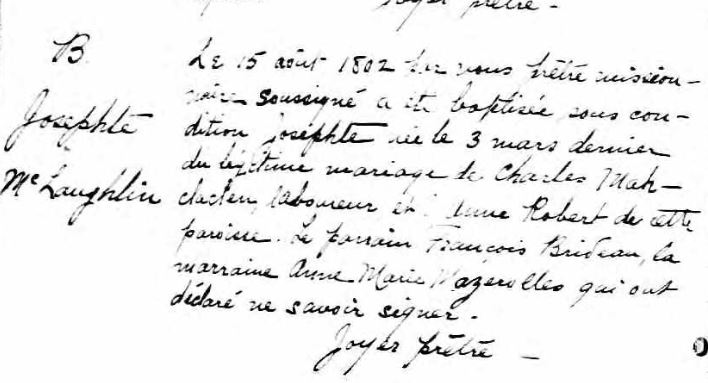 Joyer prêtre -
B.
Josephte
McLaughlin
Le 15 août 1802 par nous prêtre mission-
naire soussigné a été baptisée sous con-
dition Josephte née le 3 mars dernier
du légitime mariage de Charles Mak-
clacten, laboureur et Anne Robert de cette
paroisse. Le parrain François Brideau, la
marraine Anne Marie Mazerolles qui ont
déclaré ne savoir signer.
Joyer prêtre -